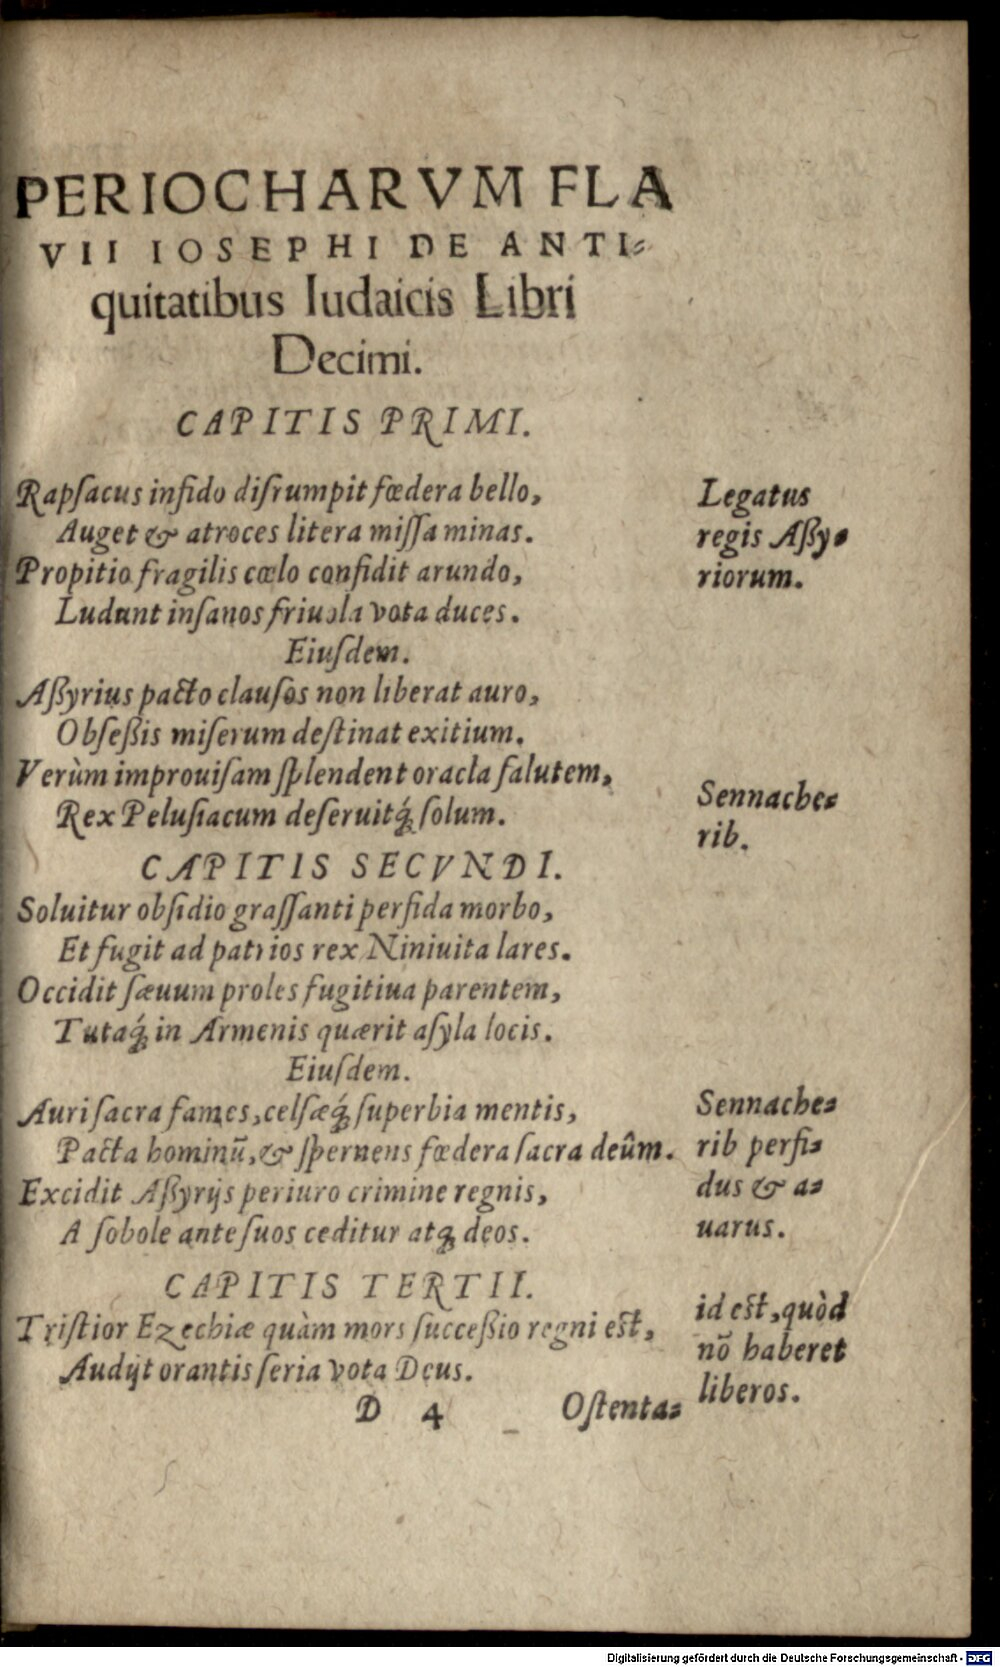 PERIOCHARVM FLA
VII IOSEPHI DE ANTI⸗
quitatibus Iudaicis Libri
Decimi.
CAPITIS PRIMI.
Rapſacus infido diſrumpit fœdera bello,
Auget & atroces litera miſſa minas.
Propitio fragilis cœlo confidit arundo,
Ludunt inſanos friuola vota duces.
Eiuſdem.
Aßyrius pacto clauſos non liberat auro,
Obſeßis miſerum deſtinat exitium.
Verùm improuiſam ſplendent oracla ſalutem,
Rex Peluſiacum deſeruitq́; ſolum.
CAPITIS SECVNDI.
Soluitur obſidio graſſanti perfida morbo,
Et fugit ad patrios rex Niniuita lares.
Occidit ſæuum proles fugitiua parentem,
Tutaq́; in Armenis quærit aſyla locis.
Eiuſdem.
Auri ſacra fames, celſæq́; ſuperbia mentis,
Pacta hominũ, & ſpernens fœdera ſacra deûm.
Excidit Aßyrijs periuro crimine regnis,
A ſobole ante ſuos ceditur atq; deos.
CAPITIS TERTII.
Triſtior Ezechiæ quàm mors ſucceßio regni est,
Audijt orantis ſeria vota Deus.
D 4 Oſtenta⸗
Legatus
regis Aßy⸗
riorum.
Sennache⸗
rib.
Sennache⸗
rib perfi⸗
dus & a⸗
uarus.
id est, quòd
nõ haberet
liberos.
Digitalisierung gefördert durch die Deutsche Forschungsgemeinschaft - DFG